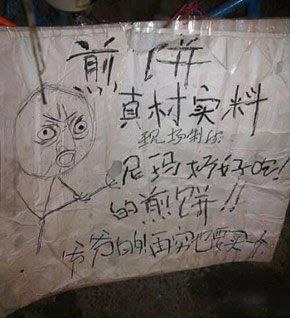 煎饼
真材实料
现场制作
尼玛好好吃!
的煎饼!!
爷爷的 再穷也要买一个